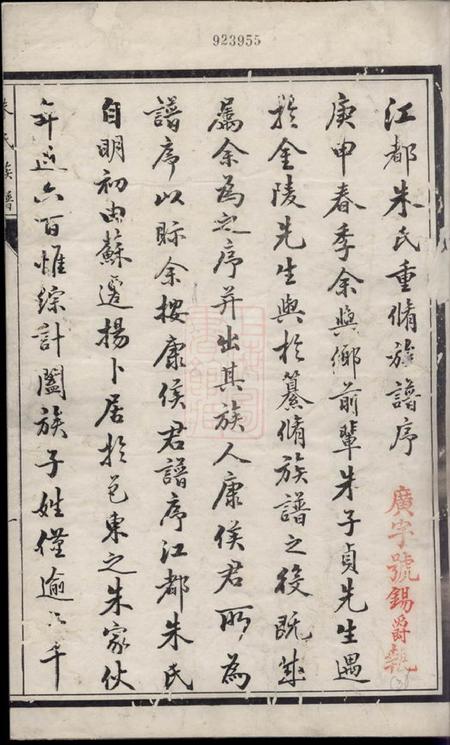 923955
江都朱氏重脩族譜序
庚申春季余與鄉前輩朱子貞先生遇
於金陵先生與於纂脩族譜之役既成
屬余為之序并出其族人康侯君所為
譜序以眎余按康侯君譜序江都朱氏
自明初由蘇遷揚卜居於邑東之朱家伙
年近六百惟綜計闔族子姓僅逾千
廣字號錫爵執
朱氏族譜